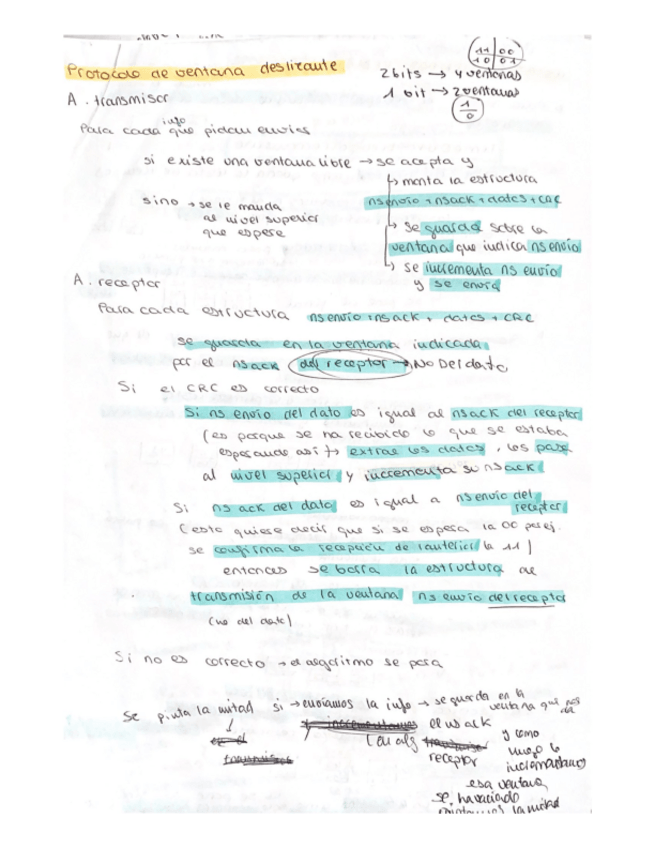 Protocolo de ventana deslizante
11 00
10 01
2 bits → 4 ventanas
1 bit → 2 ventanas
1
0
A. transmisor
Para cada info que pidan enviar
si existe una ventana libre → se acepta y
↳ monta la estructura
ns envio + nsack + datos + CRC
sino → se le manda
al nivel superior
que espere
↳ se guarda sobre la
ventana que indica ns envio
↳ se incrementa ns envio
y se envia
A. receptor
Para cada estructura ns envio + nsack + datos + CRC
se guarda en la ventana indicada
por el nsack del receptor → No Del dato
Si el CRC es correcto
Si ns envio del dato es igual al nsack del receptor
(es porque se ha recibido lo que se estaba
esperando asi) → extrae los datos, los pasa
al nivel superior y incrementa su nsack
Si ns ack del dato es igual a ns envio del
receptor
(esto quiere decir que si se espera la 00 por ej.
se confirma la recepción de la anterior la 11)
entonces se borra la estructura de
transmisión de la ventana ns envio del receptor
(no del dato)
Si no es correcto → el algoritmo se para
Se pinta la mitad si → enviamos la info → se guarda en la
ventana que nos da
el ns ack
(en alg receptor
y como
luego lo
incrementamos
esa ventana
se ha vaciado
pintamos la mitad